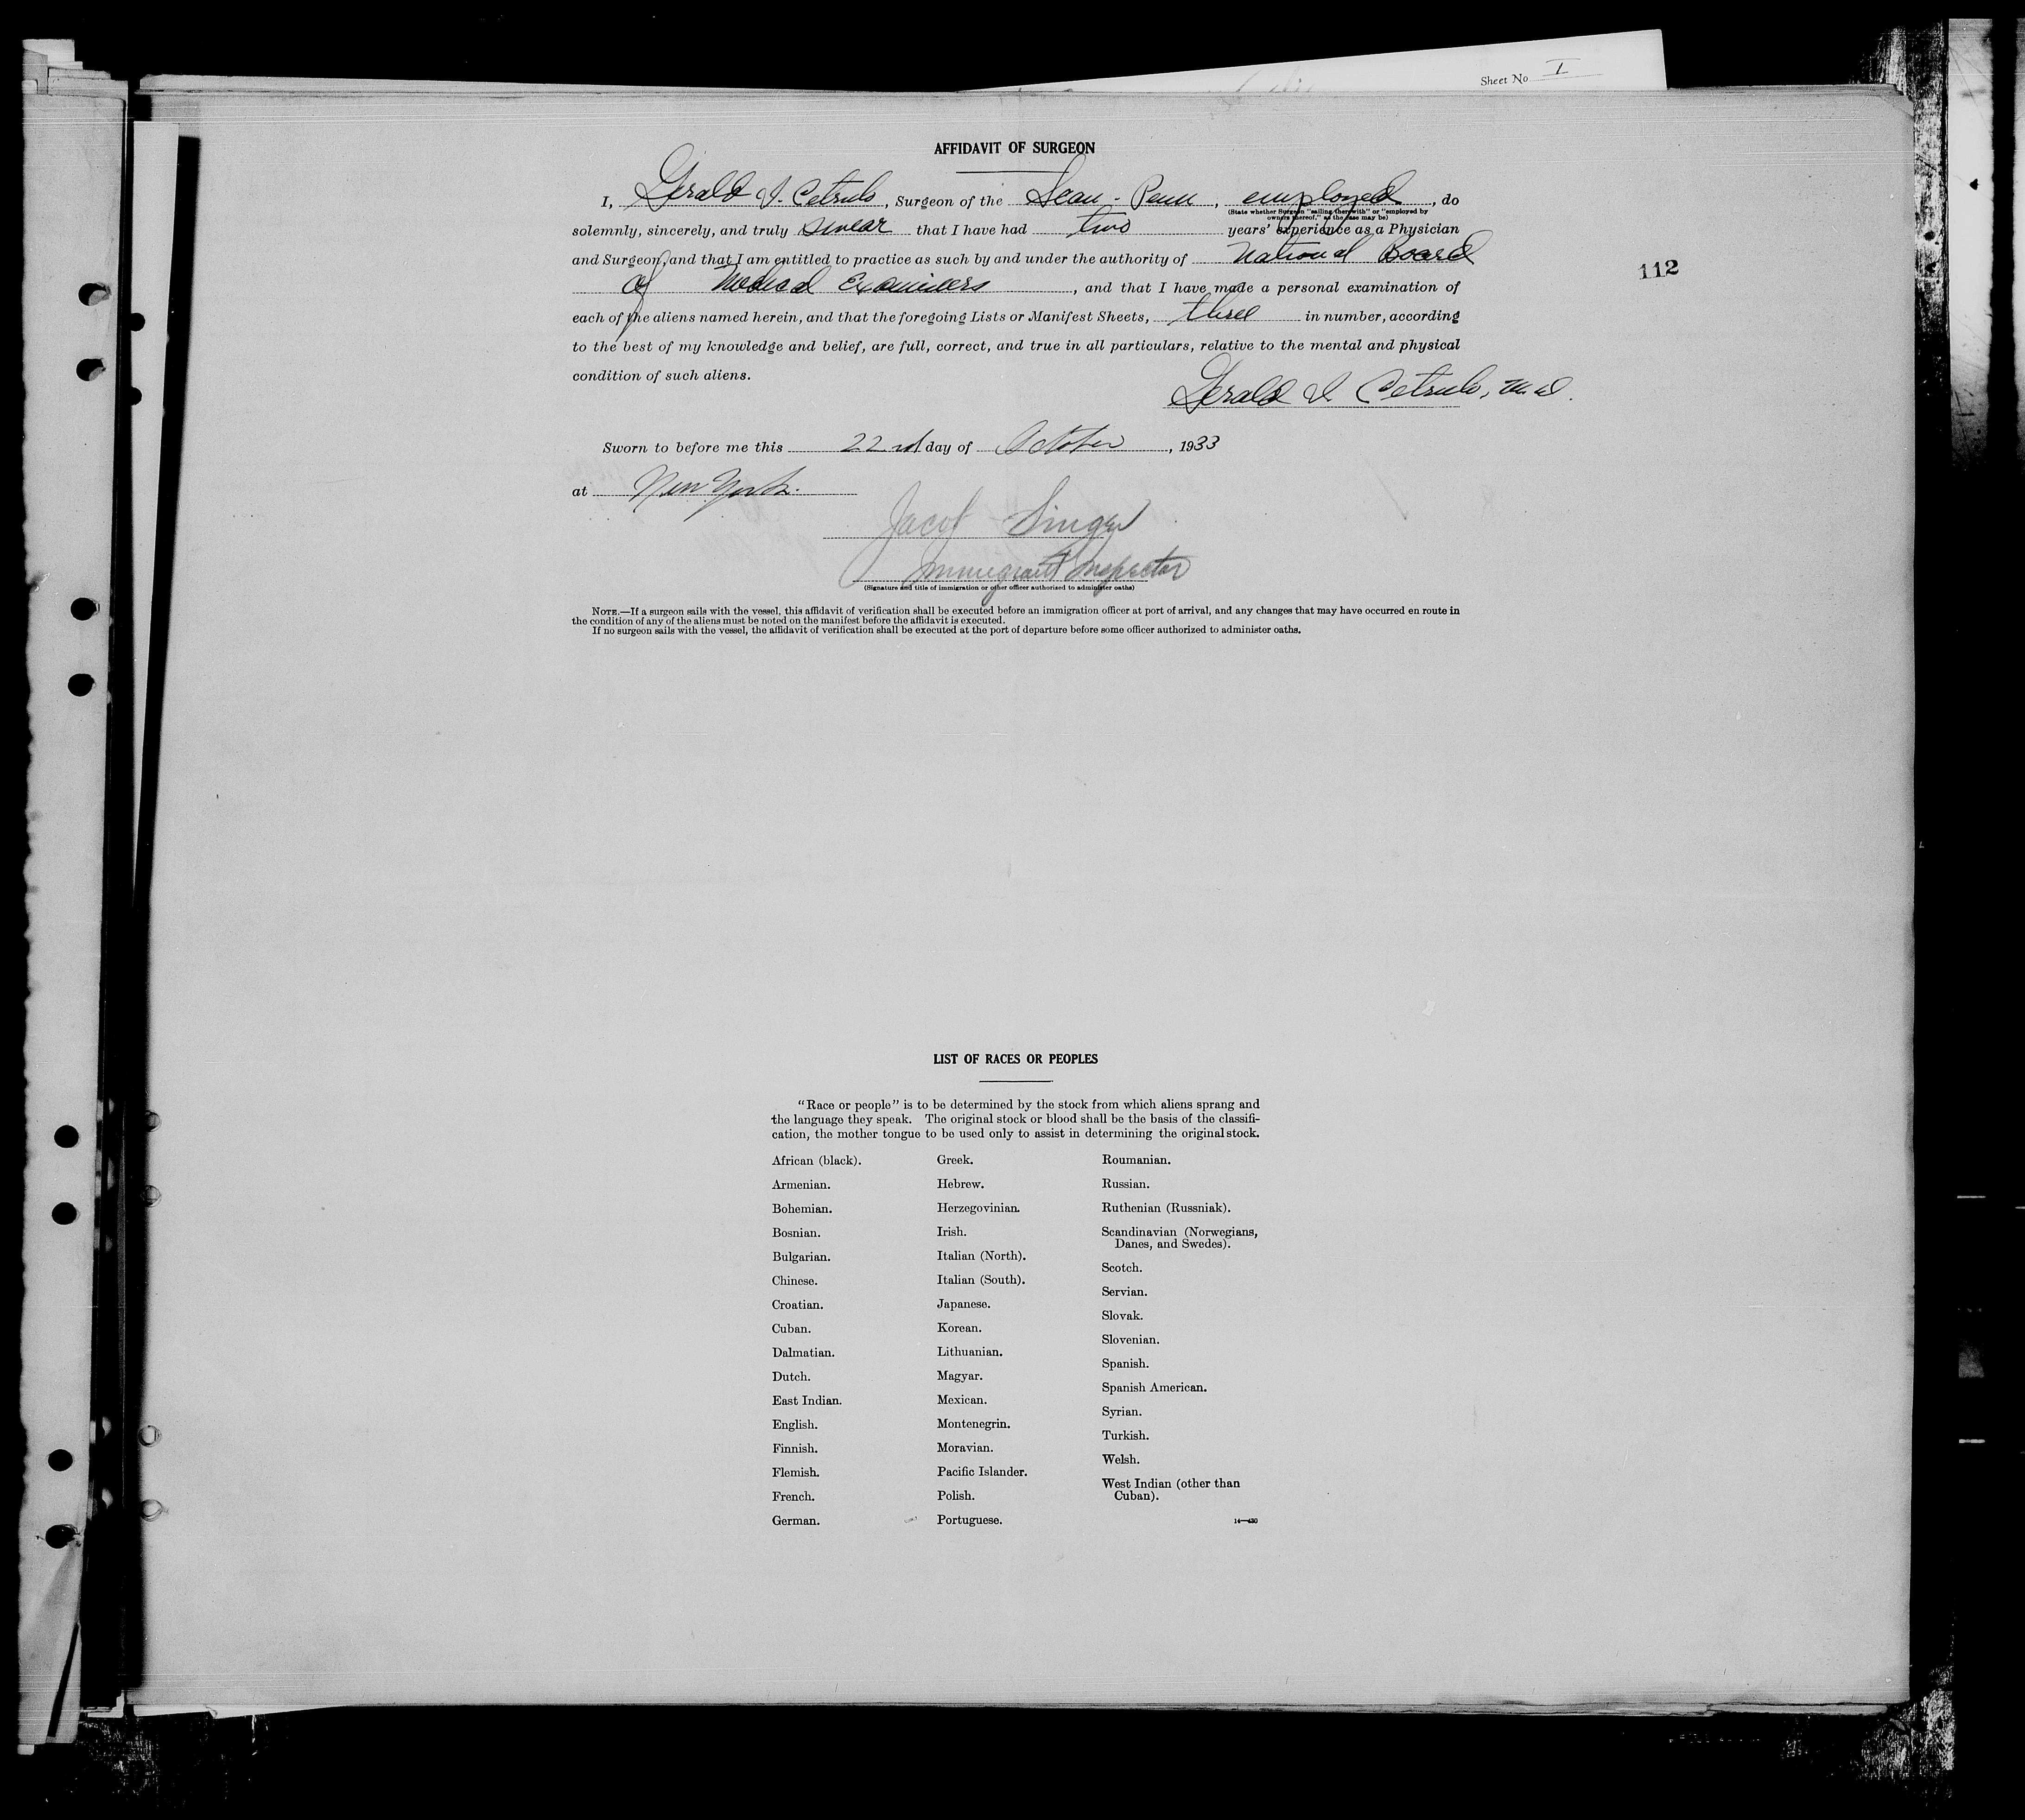 Sheet No I
AFFIDAVIT OF SURGEON
I, Gerald I. Cetrulo, Surgeon of the Scan-Penn, employed, do
(State whether Surgeon "sailing therewith" or "employed by
owners thereof," as the case may be)
solemnly, sincerely, and truly swear that I have had two years' experience as a Physician
and Surgeon, and that I am entitled to practice as such by and under the authority of National Board
112
of Medical Examiners, and that I have made a personal examination of
each of the aliens named herein, and that the foregoing Lists or Manifest Sheets, three in number, according
to the best of my knowledge and belief, are full, correct, and true in all particulars, relative to the mental and physical
condition of such aliens.
Gerald I Cetrulo, M.D.
Sworn to before me this 22nd day of October, 1933
at New York.
Jacob Singer
Immigrant Inspector
(Signature and title of immigration or other officer authorized to administer oaths)
NOTE.—If a surgeon sails with the vessel, this affidavit of verification shall be executed before an immigration officer at port of arrival, and any changes that may have occurred en route in
the condition of any of the aliens must be noted on the manifest before the affidavit is executed.
If no surgeon sails with the vessel, the affidavit of verification shall be executed at the port of departure before some officer authorized to administer oaths.
LIST OF RACES OR PEOPLES
"Race or people" is to be determined by the stock from which aliens sprang and
the language they speak. The original stock or blood shall be the basis of the classifi-
cation, the mother tongue to be used only to assist in determining the original stock.
African (black).
Armenian.
Bohemian.
Bosnian.
Bulgarian.
Chinese.
Croatian.
Cuban.
Dalmatian.
Dutch.
East Indian.
English.
Finnish.
Flemish.
French.
German.
Greek.
Hebrew.
Herzegovinian.
Irish.
Italian (North).
Italian (South).
Japanese.
Korean.
Lithuanian.
Magyar.
Mexican.
Montenegrin.
Moravian.
Pacific Islander.
Polish.
Portuguese.
Roumanian.
Russian.
Ruthenian (Russniak).
Scandinavian (Norwegians,
Danes, and Swedes).
Scotch.
Servian.
Slovak.
Slovenian.
Spanish.
Spanish American.
Syrian.
Turkish.
Welsh.
West Indian (other than
Cuban).
14—430